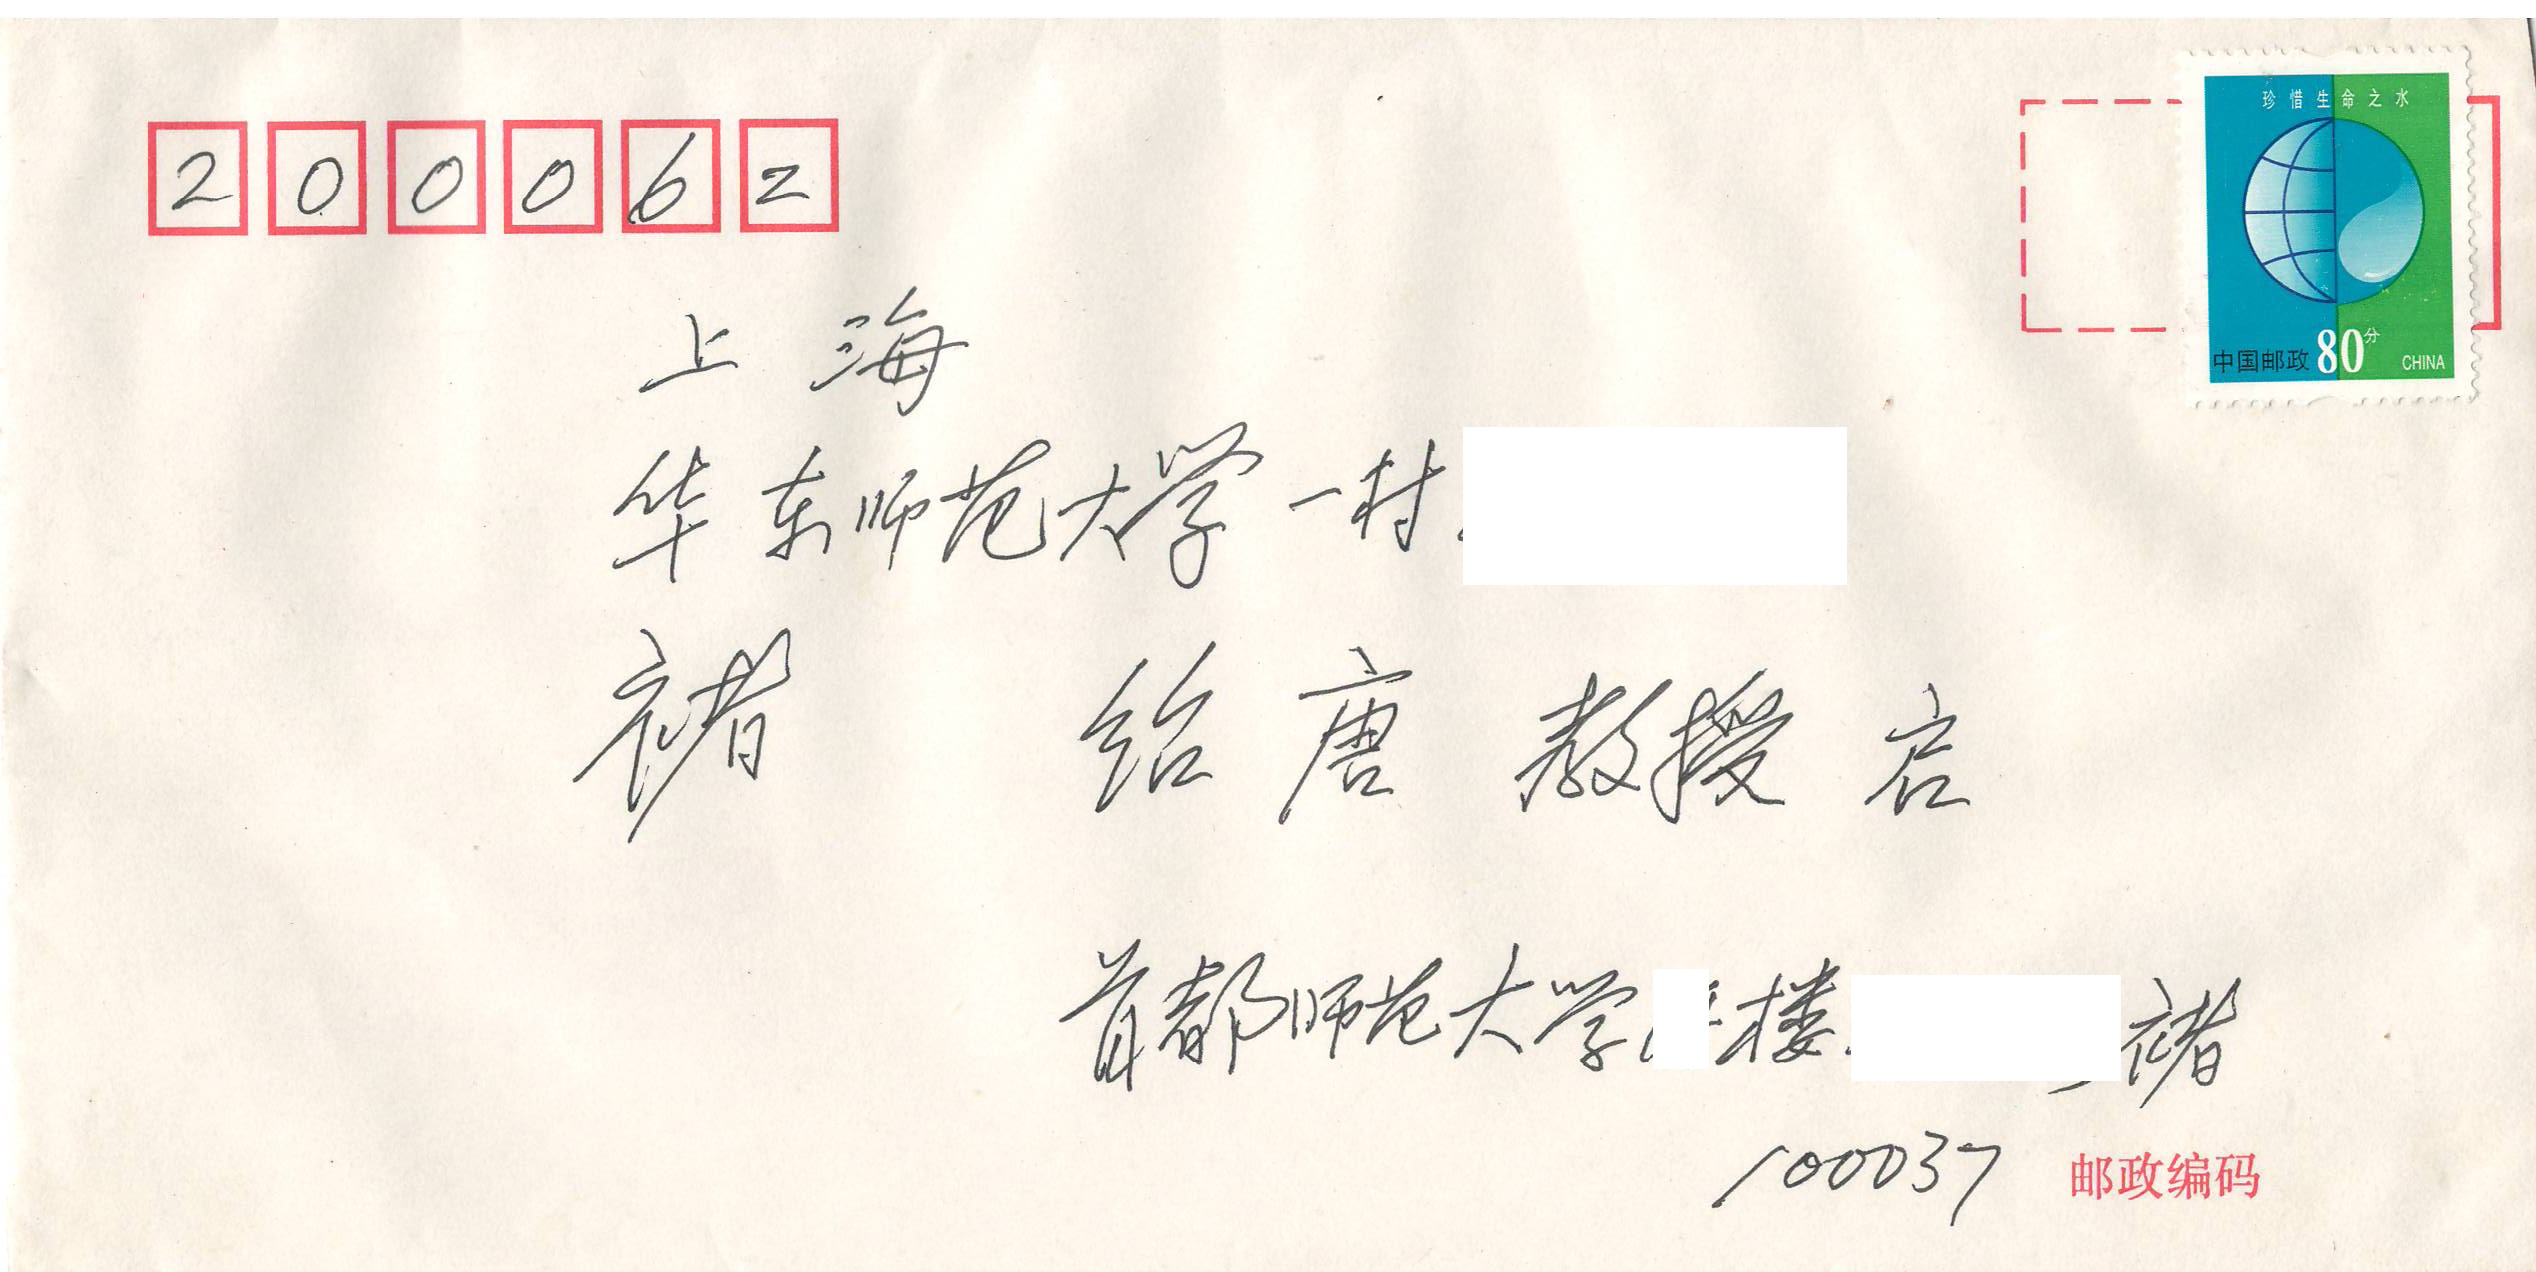 200062
珍惜生命之水
中国邮政 80分 CHINA
上海
华东师范大学一村
褚 绍唐 教授 启
首都师范大学 楼 褚
100037 邮政编码